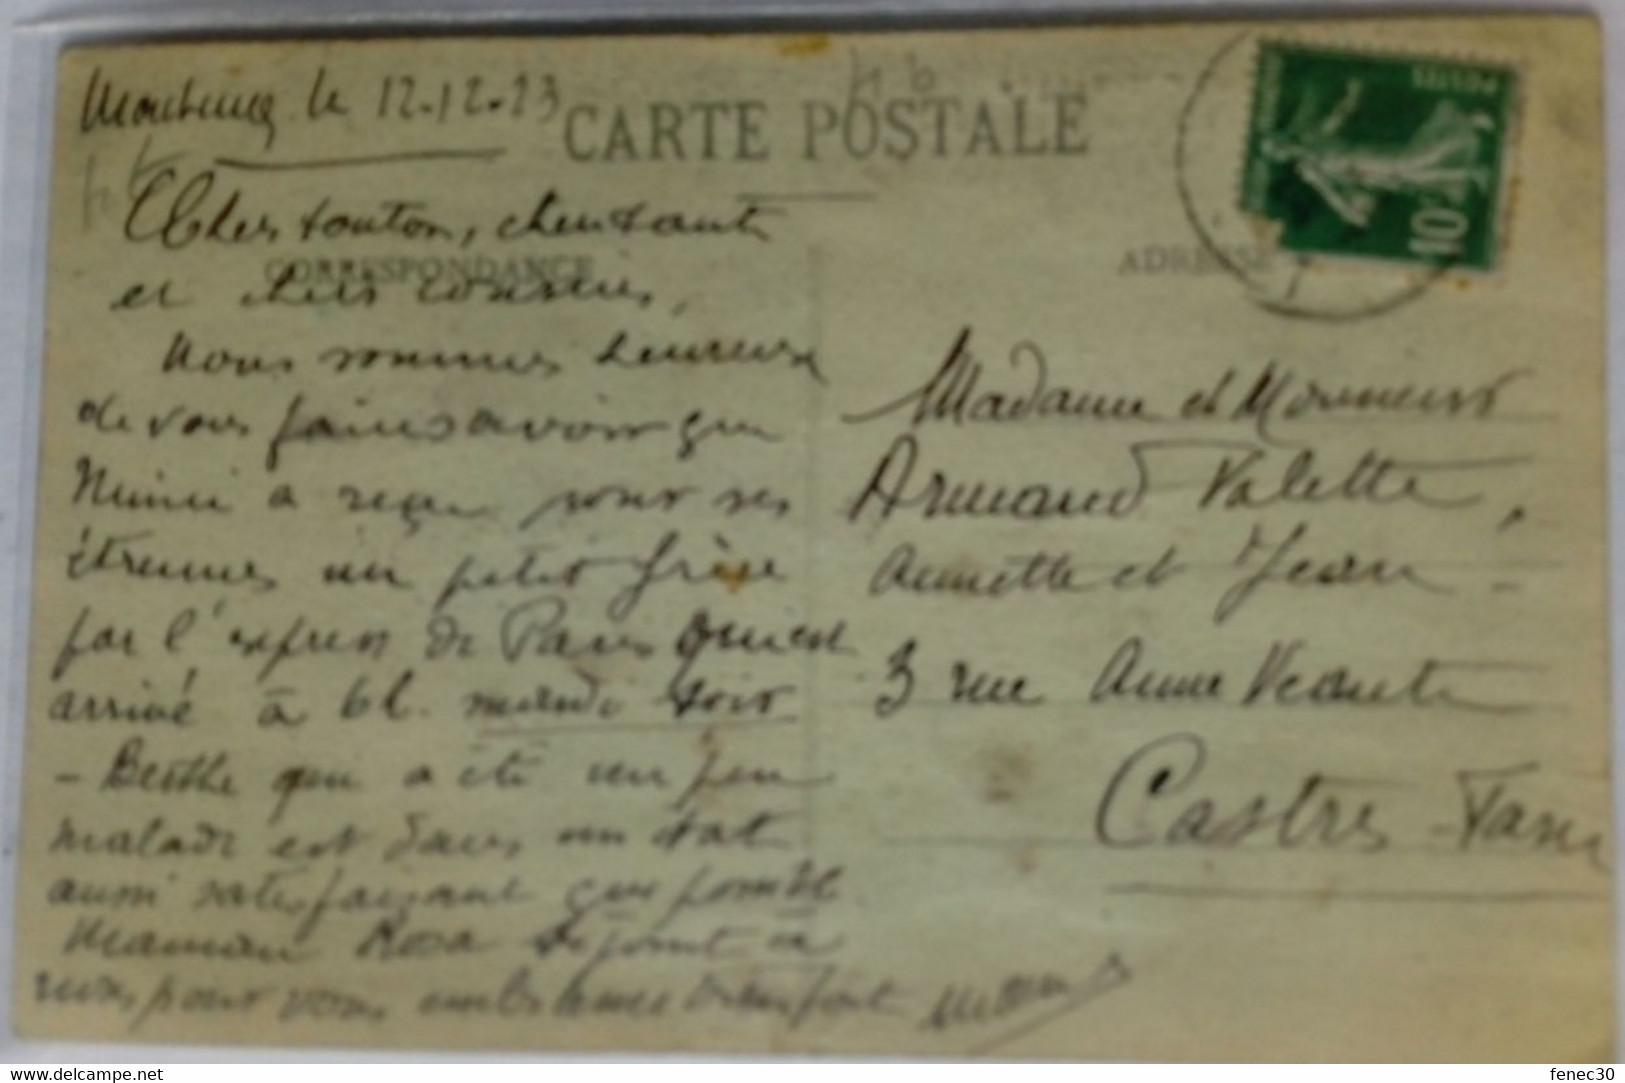 le 12.12.23
CARTE POSTALE
Cher tonton, chère tante
CORRESPONDANCE
et chers cousins,
ADRESSE
POSTES
10
Nous sommes heureux
de vous faire savoir que
Mimi a reçu pour ses
étrennes un petit frère
par l'express de Paris
arrivé à 6h. mardi soir
- Berthe qui a été un peu
malade est dans un état
aussi satisfaisant que possible
Maman Rosa se joint à
nous pour vous embrasser bien fort
Madame et Monsieur
Armand Valette,
Annette et Jean -
3 rue Anne Veaute
Castres - Tarn
www.delcampe.net
fenec30